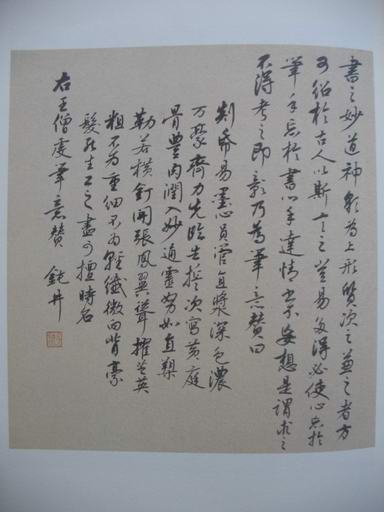 書之妙道神彩為上形質次之兼之者方
可紹於古人以斯言之豈易多得必使心忘於
筆手忘於書心手達情書不妄想是謂求之
不得考之即彰乃為筆意贊曰
剡紙易墨心員管直漿深色濃
万豪齊力先臨告誓次寫黃庭
骨豐肉潤入妙通靈努如直槊
勒若橫釘開張鳳翼聳擢芝英
粗不為重細不為輕纖微向背豪
髮死生工之盡可擅時名
右王僧虔筆意贊 鈍井